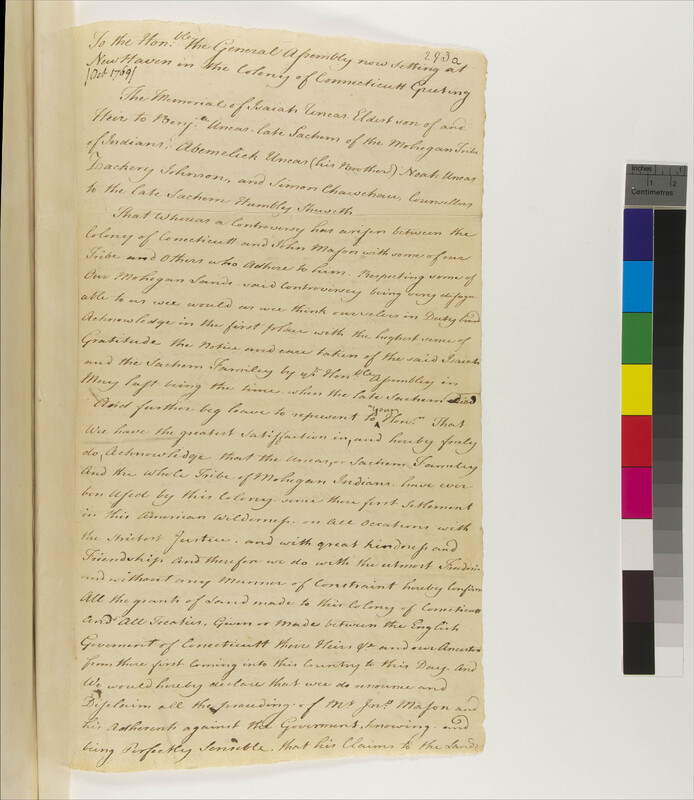 293a
To the Hon:ble the General Assembly now setting at
New Haven in the Colony of Connecticutt Greeting
[Oct 1769]
The Memorial of Isaiah Uncas Eldest son of and
Heir to Benj:a Uncas late Sachem of the Mohegan Tribe
of Indians. Abemeleck Uncas (his Brother) Noah Uncas
Zackery Johnson, and Simon Chawchaw, Counsellers
to the late Sachem Humbly Sheweth
That Whereas a Controversy has arisen between the
Colony of Conecticutt and John Mason with some of our
Tribe and others who Adhere to him. Respecting some of
Our Mohegan Lands said Controversy being very disagre
able to us wee would as wee think ourselves in Duty bound
Acknowledge in the first place with the highest sense of
Gratitude the Notice and care taken of the said Isaiah
and the Sachem Familey by ye Hon:ble Assembley in
May last being the time when the late Sachem died
And further beg leave to represent to your Hon:rs That
We have the greatest Satisfaction in, and hereby freely
do, Acknowledge that the Uncas, or Sachem, Familey
And the Whole Tribe of Mohegan Indians. have ever
ben Used by this Colony since there first Setlement
in this American Wilderness. on All Occations with
the strictest Justice. and with great kindness and
Friendship And therefore we do with the utmost Freedom
and without any Manner of Constraint hereby Confirm
All the grants of Land made to this Colony of Conecticutt
And All Treaties, Given or made between the English
Goverment of Conecticutt there Heirs &c and our Ancestors
from there first Coming into this Country to this Day. And
We would hereby declare that wee do renounce and
Disclaim all the proceding of Mr Jno. Mason and
his Adherents against the Goverment, knowing and
being Perfectly Sensible, that his Claims to the Lands
Inches 1
1 2
Centimetres